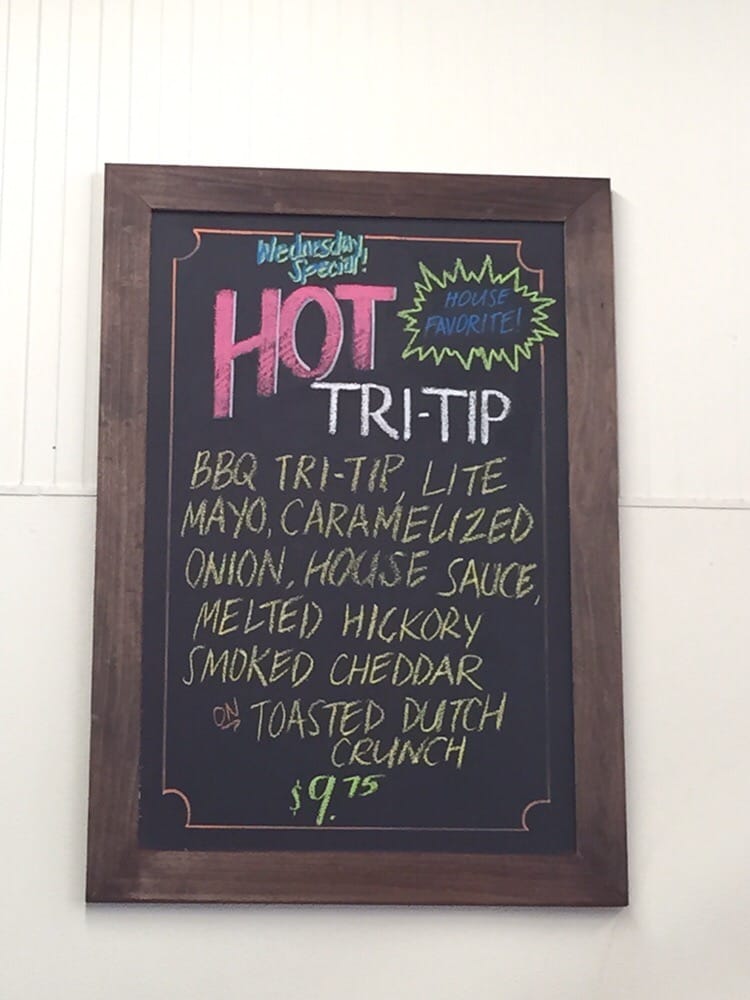 Wednesday
Special!
HOT
HOUSE
FAVORITE!
TRI-TIP
BBQ TRI-TIP, LITE
MAYO, CARAMELIZED
ONION, HOUSE SAUCE,
MELTED HICKORY
SMOKED CHEDDAR
ON TOASTED DUTCH
CRUNCH
$9.75